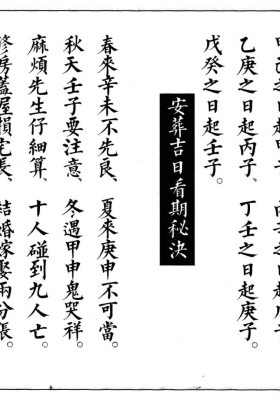 乙庚之日起丙子、丁壬之日起庚子。
戊癸之日起壬子。
安葬吉日看期秘決
春來辛未不先良、夏來庚申不可當。
秋天壬子要注意、冬遇甲申鬼哭祥。
麻煩先生仔細算、十人碰到九人亡。
修房蓋屋損宅長、結婚嫁娶兩分張。